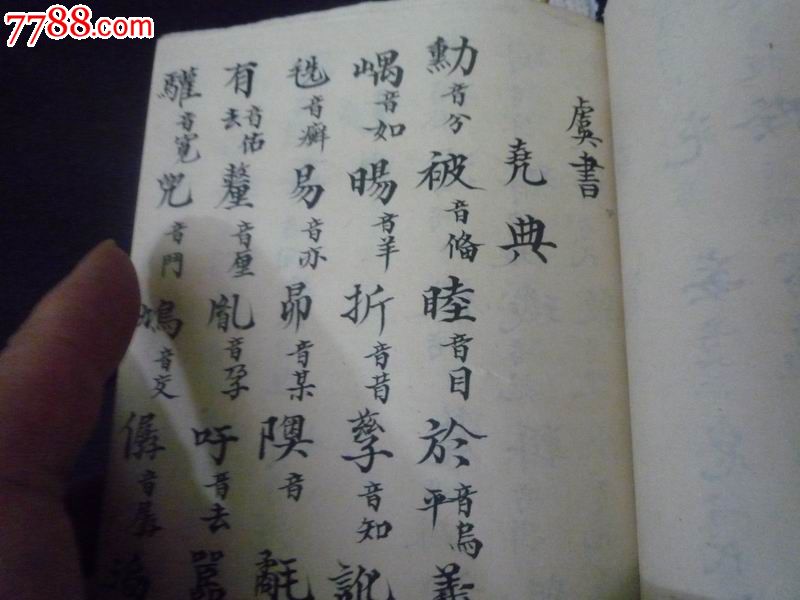 7788.com
虞書
堯典
勳音分 被音俻 睦音目 於音烏平
嵎音如 暘音羊 折音昔 孳音知 訛
毨音癬 易音亦 昴音某 隩音 氄
有音佑去 釐音厘 胤音孕 吁音去 嚚
驩音寛 兜音鬥 鳩音交 僝音孱